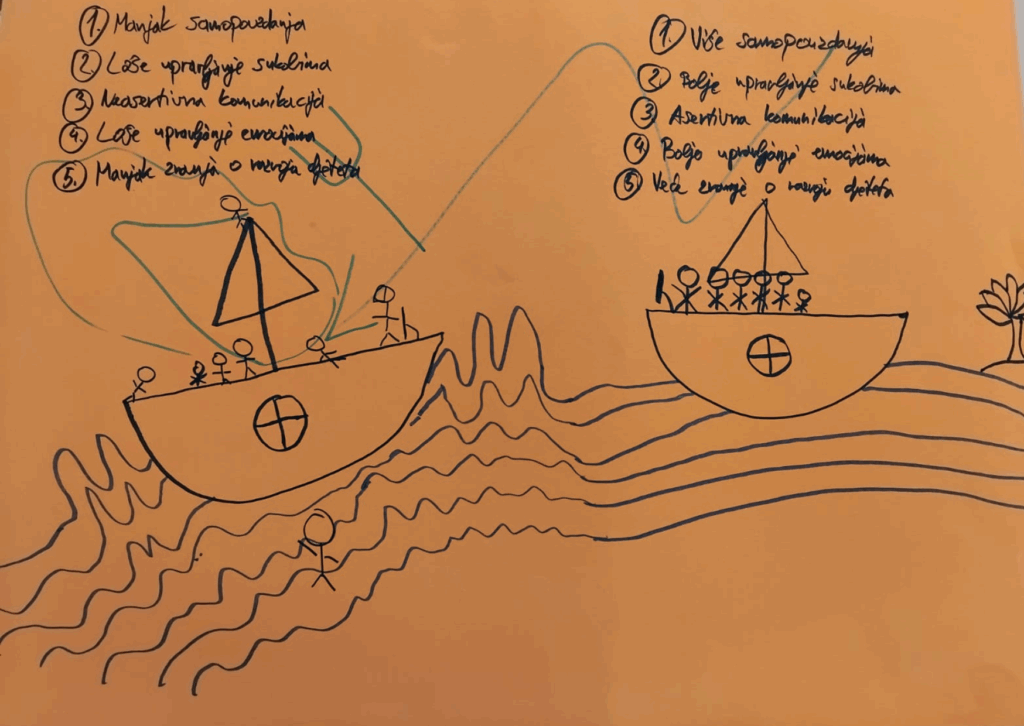 1. Manjak samopouzdanja
2. Loše upravljanje sukobima
3. Neasertivna komunikacija
4. Loše upravljanje emocijama
5. Manjak znanja o razvoju djeteta
1. Više samopouzdanja
2. Bolje upravljanje sukobima
3. Asertivna komunikacija
4. Bolje upravljanje emocijama
5. Veće znanje o razvoju djeteta